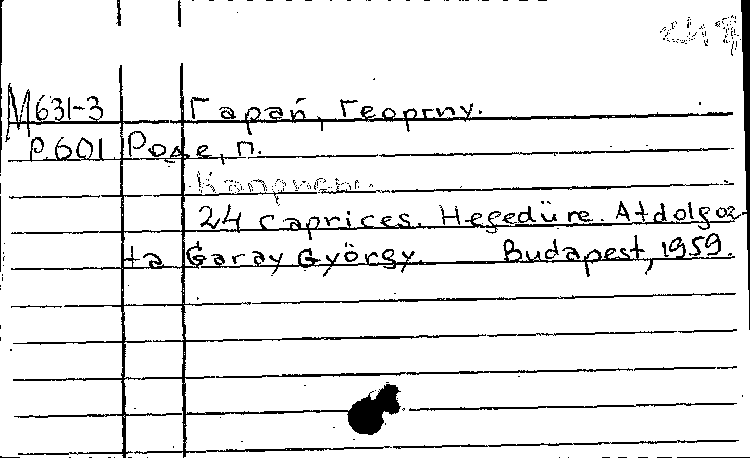 М631-3 Гарай, Георгну.
Р.601 Роде, П.
Каприсы.
24 caprices. Hegedüre. Atdolgoz-
ta Garay György. Budapest, 1959.